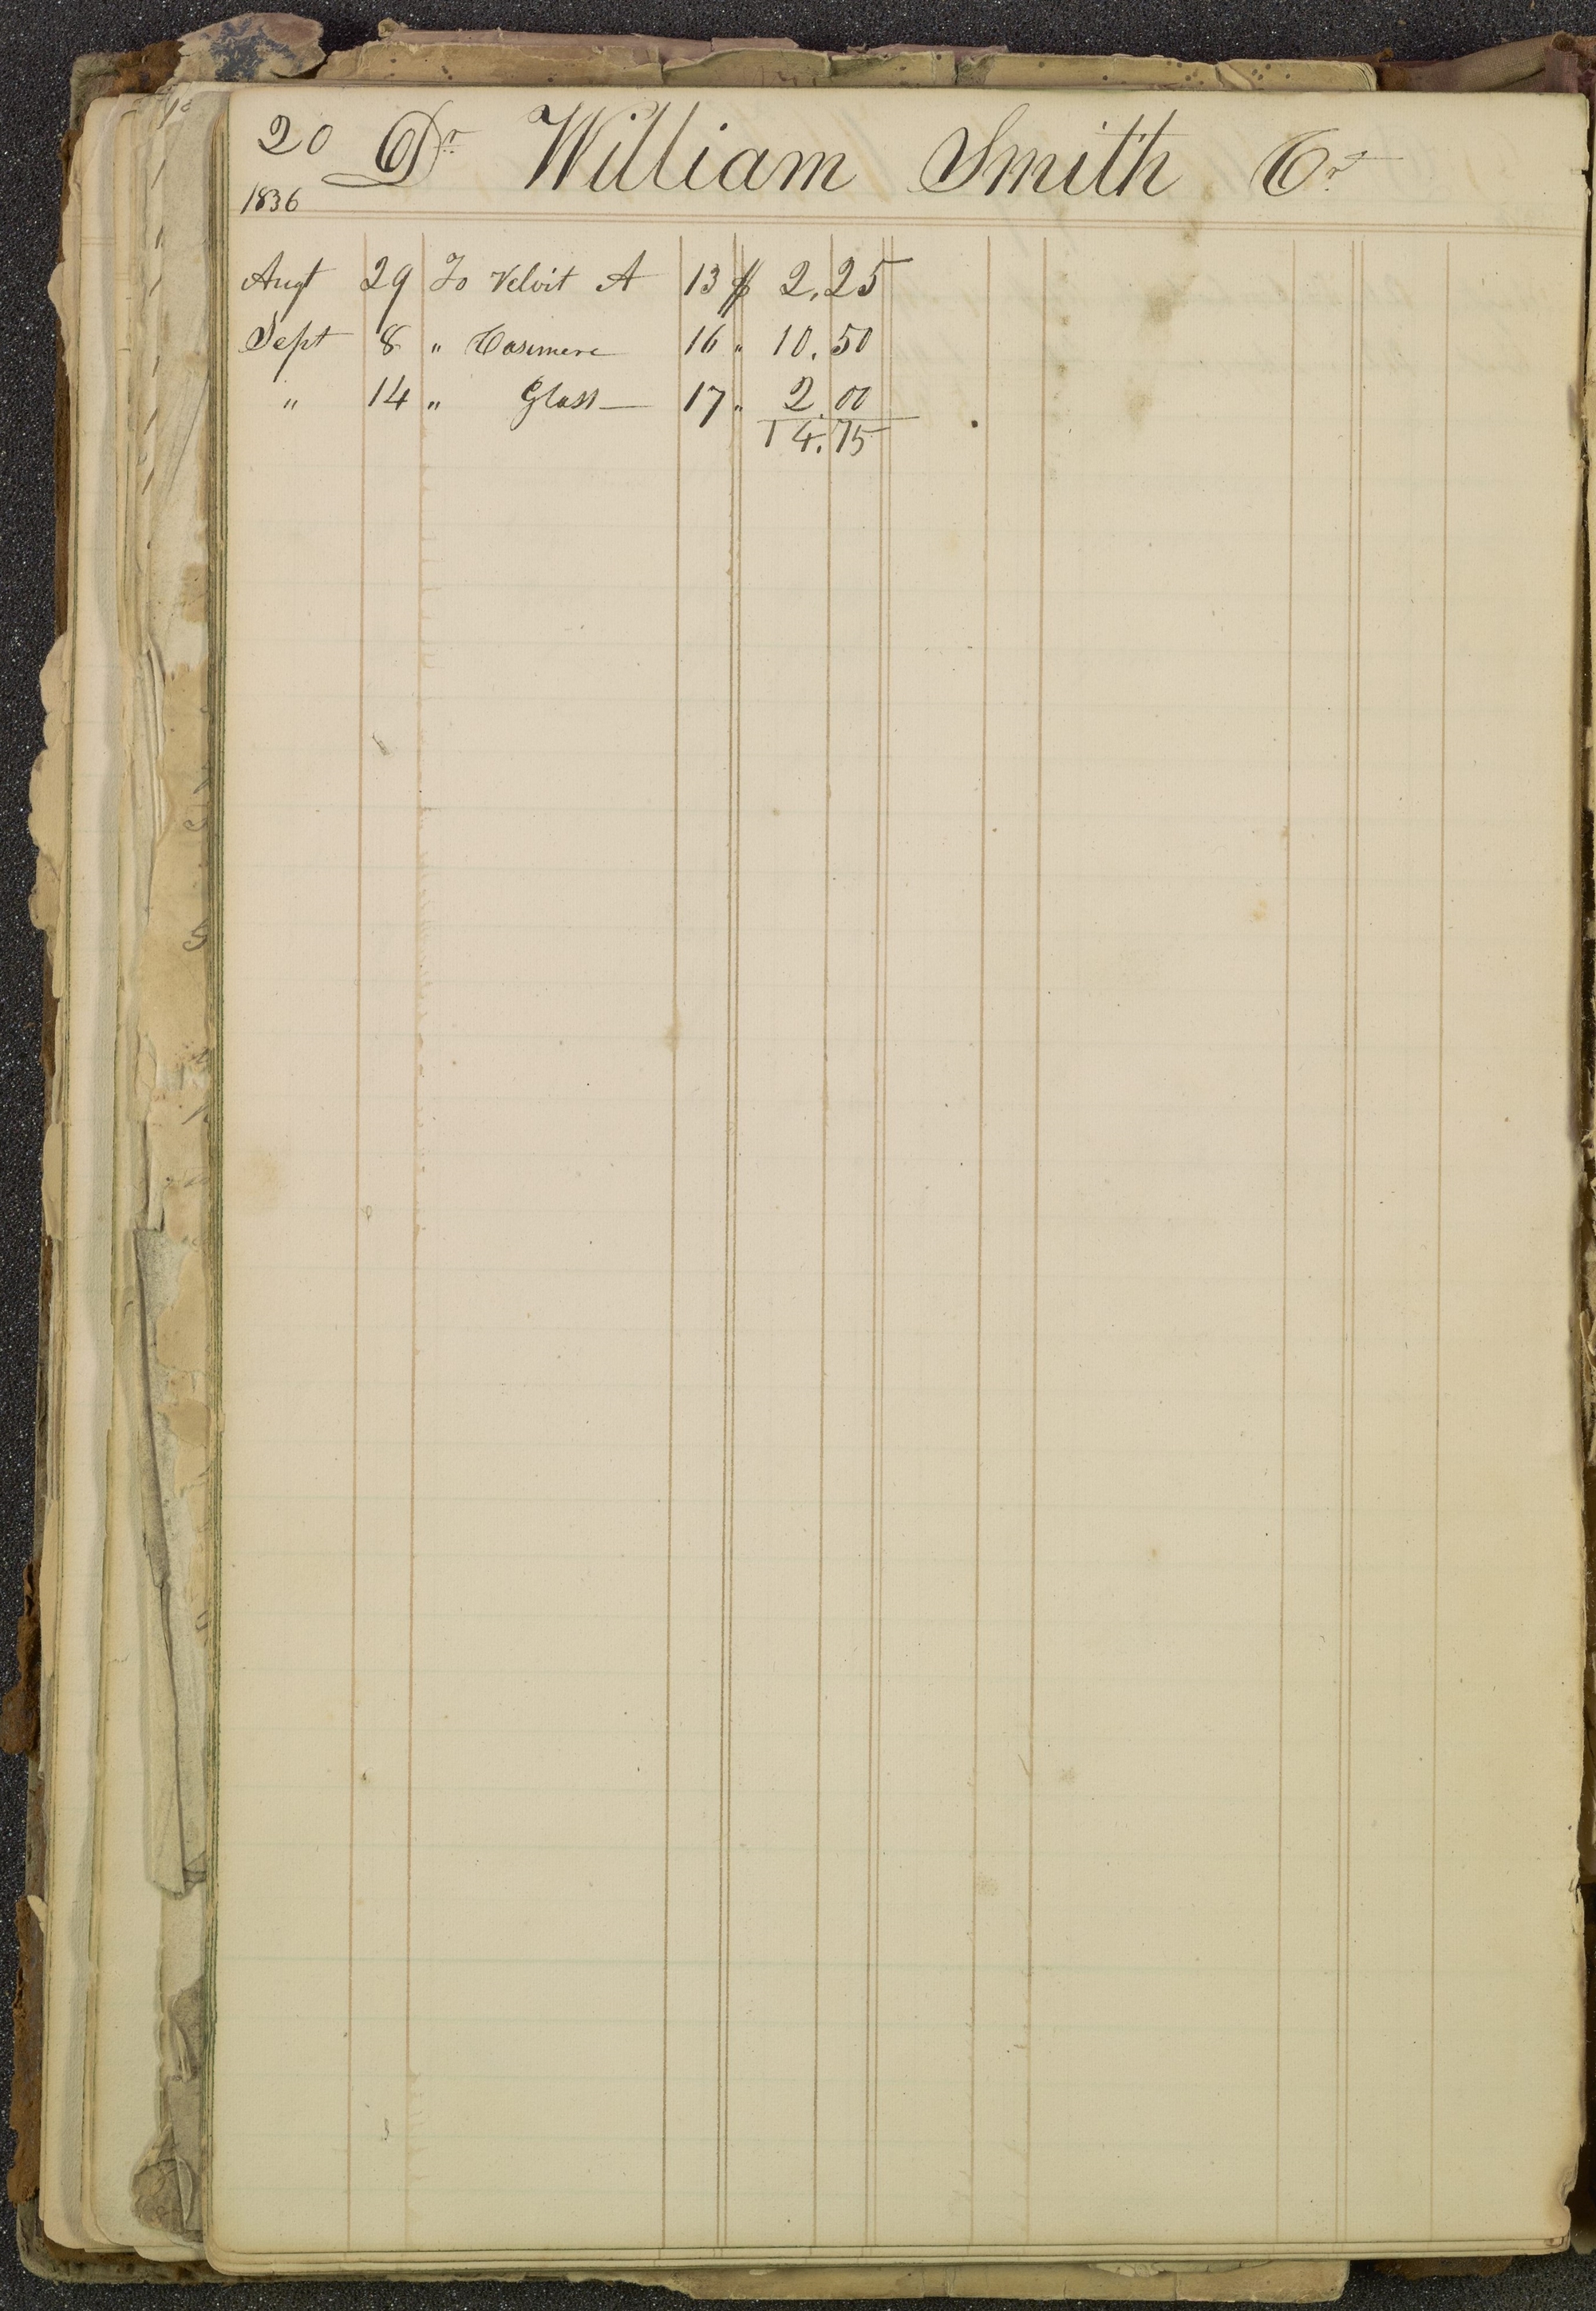 20 Dr William Smith Cr
1836
Augt 29 To Velvit A 13 $ 2.25
Sept 8 " Casimere 16 " 10.50
" 14 " Glass 17 " 2.00
14.75